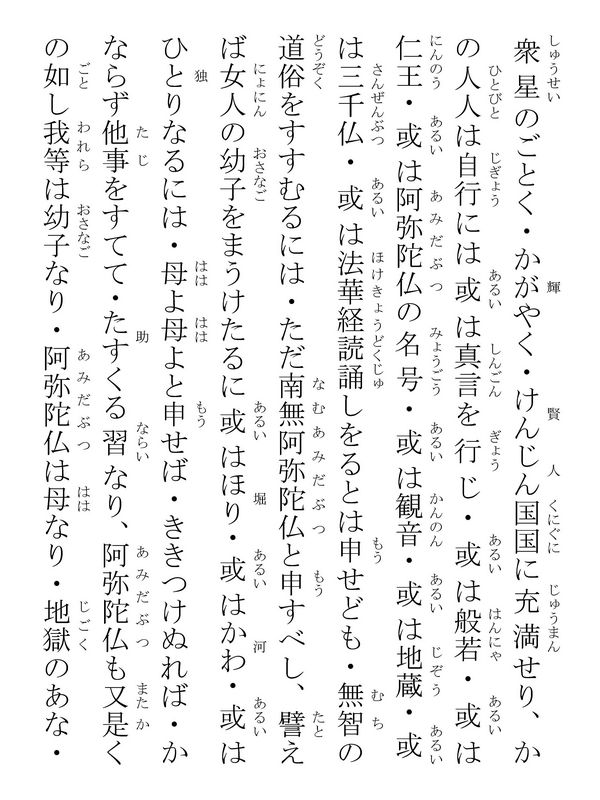 衆星のごとく・かがやく・けんじん国国に充満せり、か
の人人は自行には或は真言を行じ・或は般若・或は
仁王・或は阿弥陀仏の名号・或は観音・或は地蔵・或
は三千仏・或は法華経読誦しをるとは申せども・無智の
道俗をすすむるには・ただ南無阿弥陀仏と申すべし、譬え
ば女人の幼子をまうけたるに或はほり・或はかわ・或は
ひとりなるには・母よ母よと申せば・ききつけぬれば・か
ならず他事をすてて・たすくる習なり、阿弥陀仏も又是く
の如し我等は幼子なり・阿弥陀仏は母なり・地獄のあな・